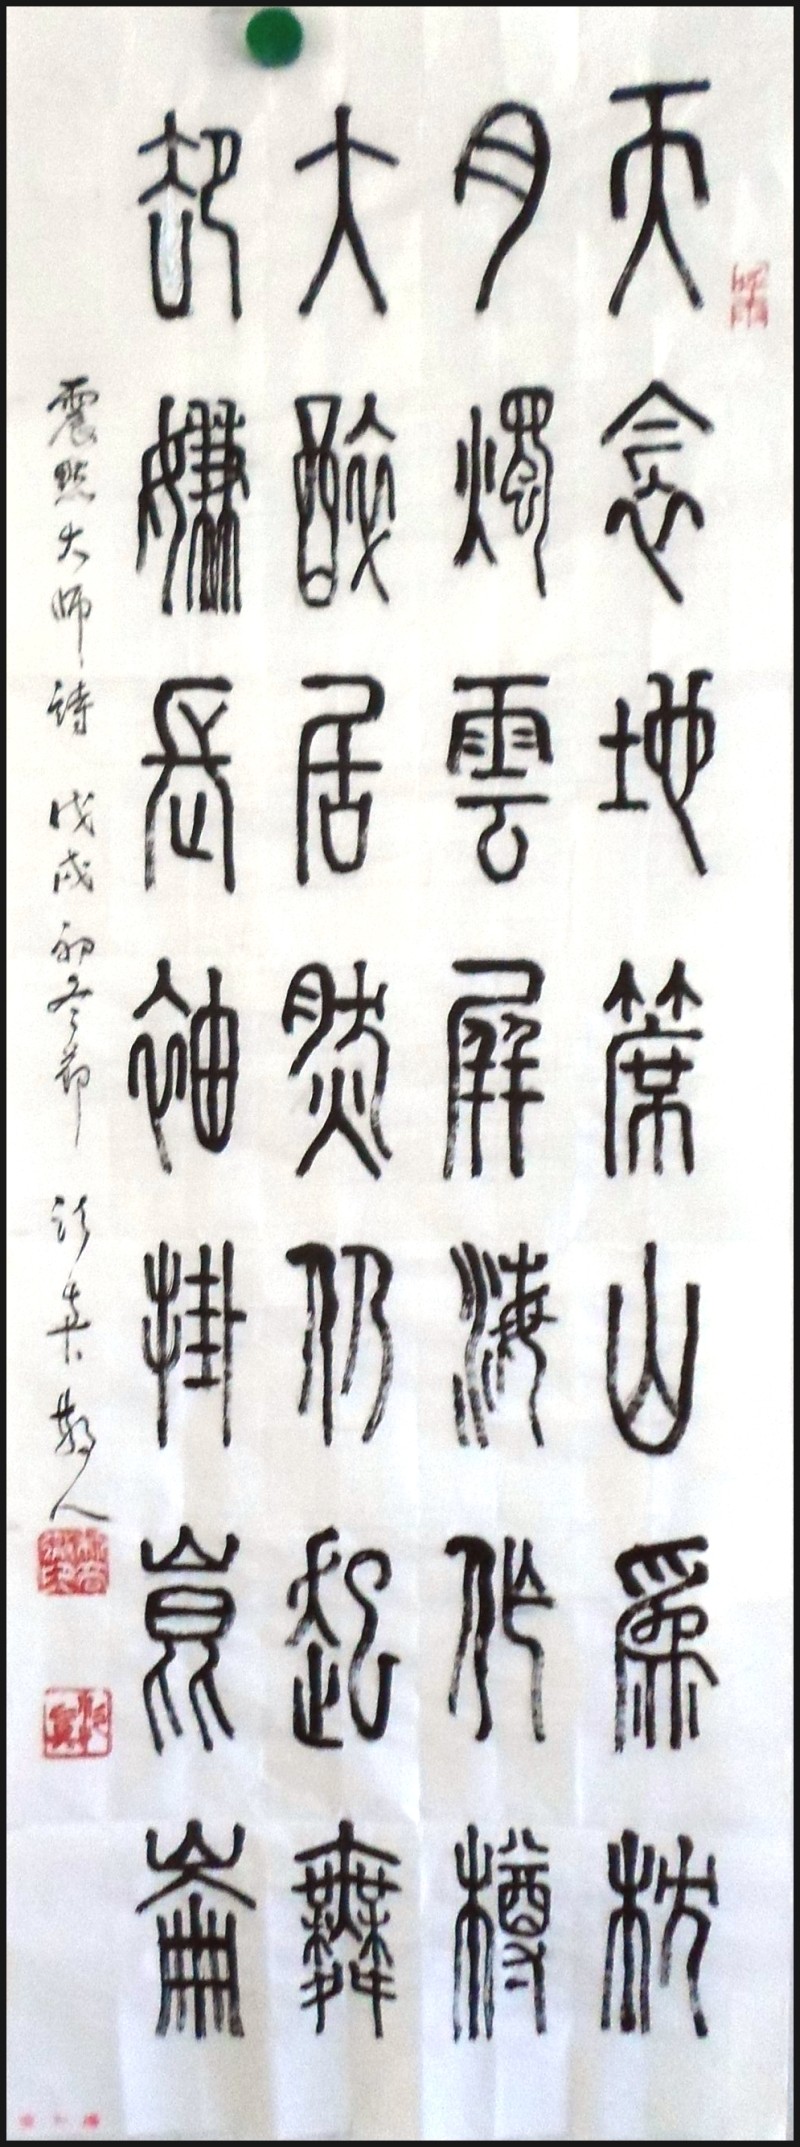 天衾地席山爲枕
月燭雲屏海作樽
大醉居然仍起舞
却嫌長袖掛崑崙
震默大師詩 戊戌初冬節 散人